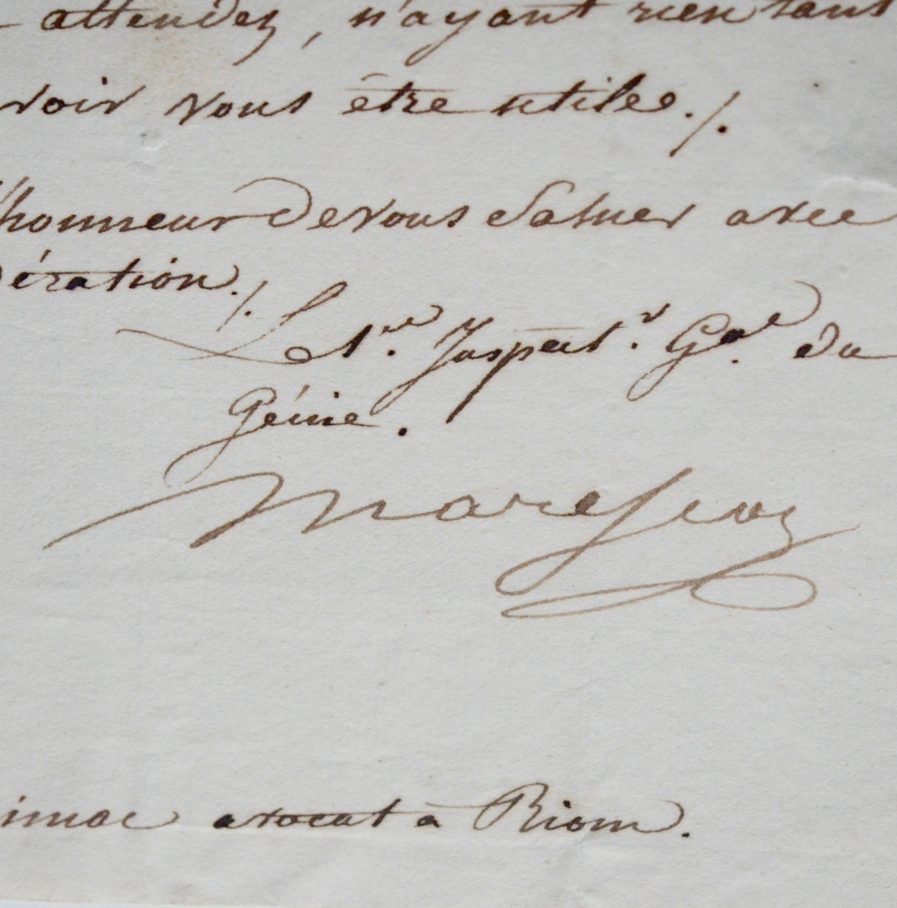 attendez, n'ayant rien tant
voir vous être utile ./.
l'honneur de vous saluer avec
dération ./.
Le 1.er Inspect.r G.al du
Génie.
Marescot
imac avocat à Riom.